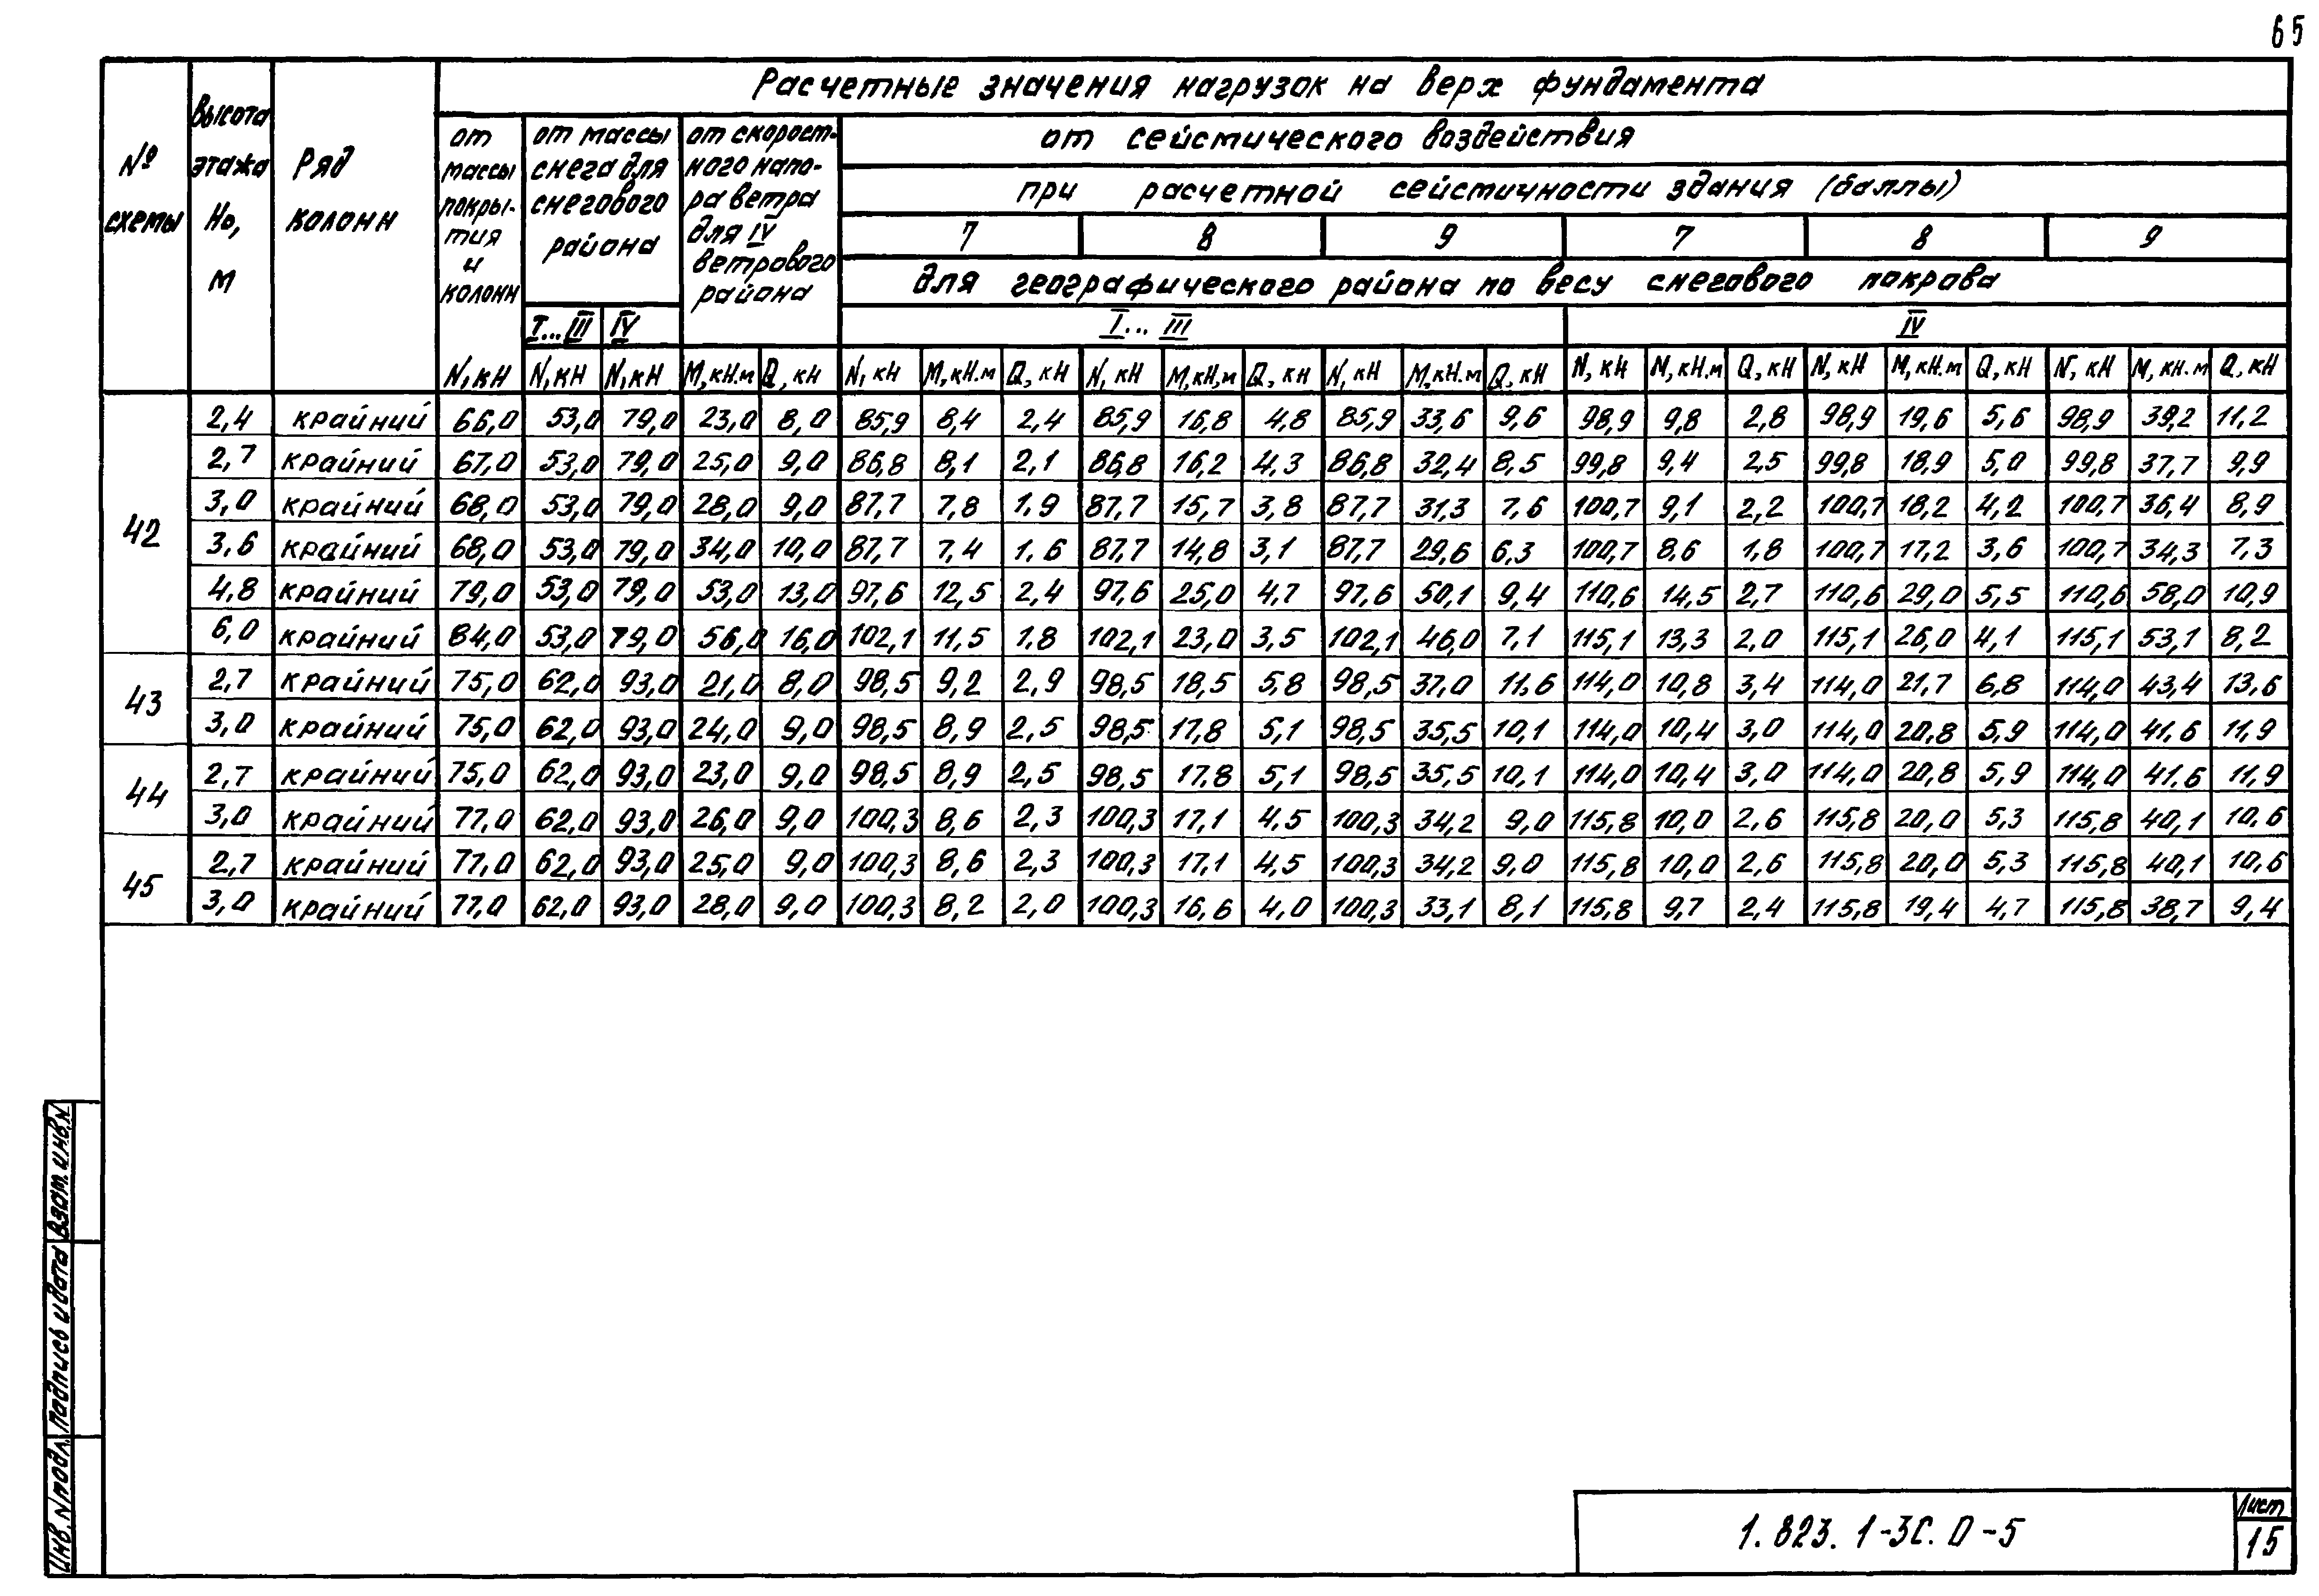 65
Расчетные значения нагрузок на верх фундамента
№ схемы
Высота этажа Но, м
Ряд колонн
от массы покры-тия и колонн
от массы снега для снегового района
от скорост-ного напо-ра ветра для IV ветрового района
от сейсмического воздействия
при расчетной сейсмичности здания (баллы)
7 8 9 7 8 9
для географического района по весу снегового покрова
I...III IV I...III IV
N,кН N,кН N,кН M,кН.м Q,кН N,кН M,кН.м Q,кН N,кН M,кН.м Q,кН N,кН M,кН.м Q,кН N,кН M,кН.м Q,кН N,кН M,кН.м Q,кН N,кН M,кН.м Q,кН
42
2,4 крайний 66,0 53,0 79,0 23,0 8,0 85,9 8,4 2,4 85,9 16,8 4,8 85,9 33,6 9,6 98,9 9,8 2,8 98,9 19,6 5,6 98,9 39,2 11,2
2,7 крайний 67,0 53,0 79,0 25,0 9,0 86,8 8,1 2,1 86,8 16,2 4,3 86,8 32,4 8,5 99,8 9,4 2,5 99,8 18,9 5,0 99,8 37,7 9,9
3,0 крайний 68,0 53,0 79,0 28,0 9,0 87,7 7,8 1,9 87,7 15,7 3,8 87,7 31,3 7,6 100,7 9,1 2,2 100,7 18,2 4,2 100,7 36,4 8,9
3,6 крайний 68,0 53,0 79,0 34,0 10,0 87,7 7,4 1,6 87,7 14,8 3,1 87,7 29,6 6,3 100,7 8,6 1,8 100,7 17,2 3,6 100,7 34,3 7,3
4,8 крайний 79,0 53,0 79,0 53,0 13,0 97,6 12,5 2,4 97,6 25,0 4,7 97,6 50,1 9,4 110,6 14,5 2,7 110,6 29,0 5,5 110,6 58,0 10,9
6,0 крайний 84,0 53,0 79,0 56,0 16,0 102,1 11,5 1,8 102,1 23,0 3,5 102,1 46,0 7,1 115,1 13,3 2,0 115,1 26,0 4,1 115,1 53,1 8,2
43
2,7 крайний 75,0 62,0 93,0 21,0 8,0 98,5 9,2 2,9 98,5 18,5 5,8 98,5 37,0 11,6 114,0 10,8 3,4 114,0 21,7 6,8 114,0 43,4 13,6
3,0 крайний 75,0 62,0 93,0 24,0 9,0 98,5 8,9 2,5 98,5 17,8 5,1 98,5 35,5 10,1 114,0 10,4 3,0 114,0 20,8 5,9 114,0 41,6 11,9
44
2,7 крайний 75,0 62,0 93,0 23,0 9,0 98,5 8,9 2,5 98,5 17,8 5,1 98,5 35,5 10,1 114,0 10,4 3,0 114,0 20,8 5,9 114,0 41,6 11,9
3,0 крайний 77,0 62,0 93,0 26,0 9,0 100,3 8,6 2,3 100,3 17,1 4,5 100,3 34,2 9,0 115,8 10,0 2,6 115,8 20,0 5,3 115,8 40,1 10,6
45
2,7 крайний 77,0 62,0 93,0 25,0 9,0 100,3 8,6 2,3 100,3 17,1 4,5 100,3 34,2 9,0 115,8 10,0 2,6 115,8 20,0 5,3 115,8 40,1 10,6
3,0 крайний 77,0 62,0 93,0 28,0 9,0 100,3 8,2 2,0 100,3 16,6 4,0 100,3 33,1 8,1 115,8 9,7 2,4 115,8 19,4 4,7 115,8 38,7 9,4
Взам. инв. N
Подпись и дата
Инв. N подл.
1.823.1-3С.0-5
Лист
15